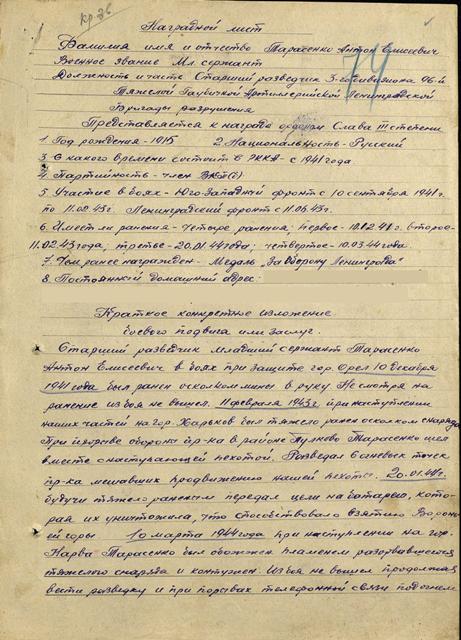 Наградной лист
Фамилия имя и отчество Тарасенко Антон Елисеевич
Военное звание Мл сержант
Должность и часть Старший разведчик 3-го дивизиона 96-й
Тяжелой Гаубичной Артиллерийской Ленинградской
Бригады разрушения
Представляется к награде орденом Слава III степени
1. Год рождения - 1915 2. Национальность - Русский
3. С какого времени состоит в РККА - с 1941 года
4. Партийность - член ВКП(б)
5. Участие в боях - Юго Западный фронт с 10 сентября 1941 г.
по 11.02.43 г. Ленинградский фронт с 11.05.43 г.
6. Имеет ли ранения - Четыре ранения; первое - 10.12.41 г. второе -
11.02.43 года, третье - 20.01.44 года; четвертое - 10.03.44 года.
7. Чем ранее награжден - Медаль „За Оборону Ленинграда"
8. Постоянный домашний адрес:
Краткое конкретное изложение
боевого подвига или заслуг.
Старший разведчик младший сержант Тарасенко
Антон Елисеевич в боях при защите гор. Орел 10 декабря
1941 года был ранен осколком мины в руку. Несмотря на
ранение из боя не вышел. 11 февраля 1943 г при наступлении
наших частей на гор. Харьков был тяжело ранен осколком снаряда
При прорыве обороны пр-ка в районе Пулково Тарасенко шел
вместе с наступающей пехотой. Разведал 6 огневых точек
пр-ка мешавших продвижению нашей пехоте. 20.01.44 г.
будучи тяжело раненым передал цели на батарею, кото-
рая их уничтожила, что способствовало взятию Воронь-
ей горы 10 марта 1944 года при наступлении на гор.
Нарва Тарасенко был обожжен пламенем разорвавшегося
тяжелого снаряда и контужен. Из боя не вышел продолжая
вести разведку и при порывах телефонной связи под огнем